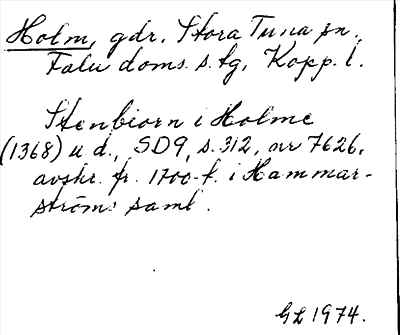 Holm, gdr, Stora Tuna sn.,
Falu doms. s. tg, Kopp. l.
Stenbiorn i Holme
(1368) u. d., SD9, s. 312, nr 7626,
avskr. fr. 1700-t. i Hammar-
ströms saml.
GL 1974.